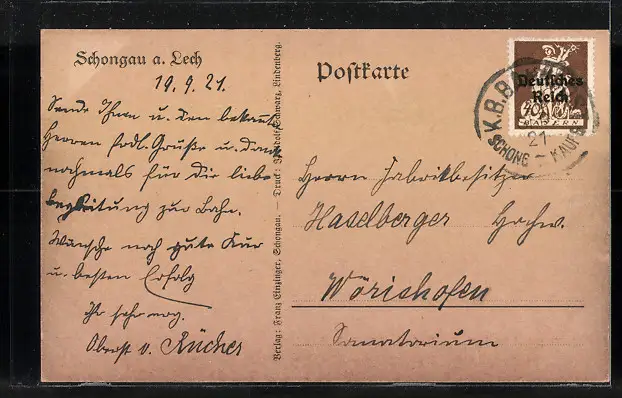 Schongau a. Lech
19.9.21.
Sende Ihnen u. den bekannten
Herren frdl. Grüße u. danke
nochmals für die liebe
Begleitung zur Bahn.
Wünsche noch gute Kur
u. besten Erfolg
Ihr sehr erg.
Oberst v.
Verlag: Franz Einzinger, Schongau. — Druck: Adolf Schwarz, Lindenberg.
Postkarte
Deutsches
Reich
BAYERN
K.B.B
21
SCHONG – KAUFB
Herrn Fabrikbesitzer
Haselberger Hochw.
Wörishofen
Sanatorium